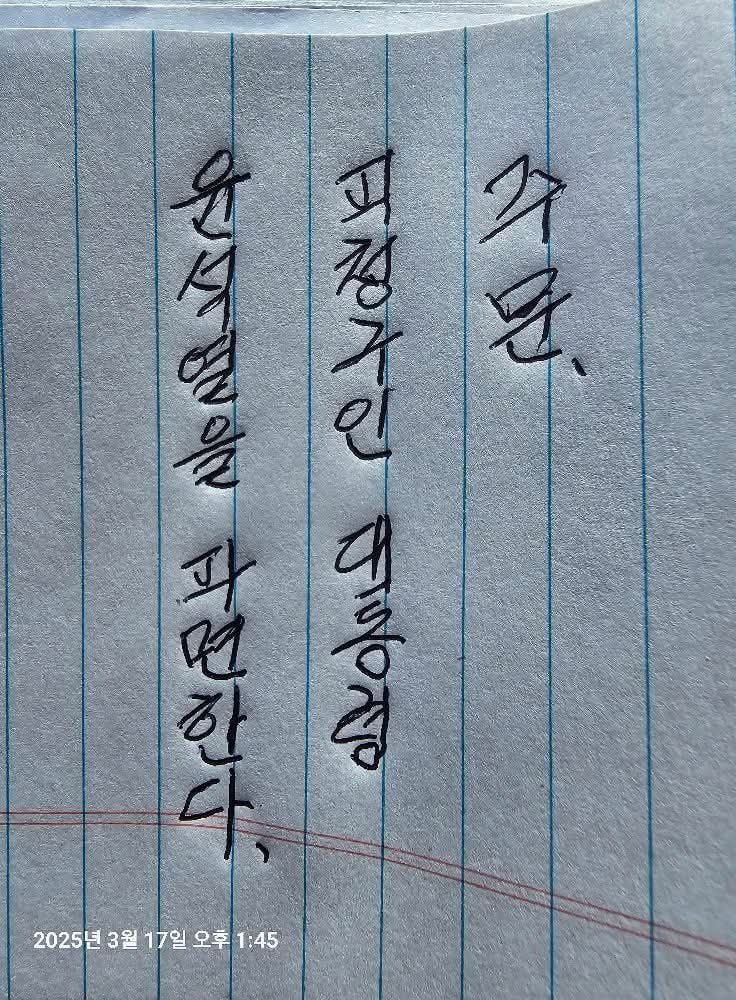 주문.
피청구인 대통령
윤석열을 파면한다.
2025년 3월 17일 오후 1:45